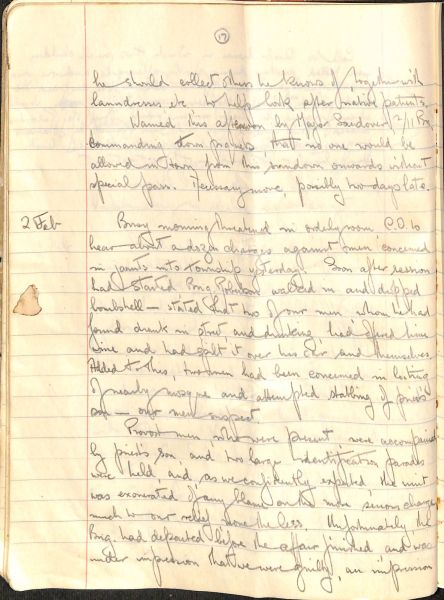 17
he should collect others he knows of, together with
laundresses etc to help look after native patients.
Warned this afternoon by Major Sandover 2/11 Bn,
commanding town piquets that no one would be
allowed in town from this sundown onwards without
special pass. Necessary move, possibly two days late.
2 Feb
Busy morning threatened in orderly room. C.O. to
hear about a dozen charges against men concerned
in jaunts into township yesterday. Soon after session
had started Brig. Robertson walked in and dropped
bombshell – stated that two of our men, whom he had
found drunk in street, and drinking, had offered him
wine and had spilt it over his car and themselves.
Added to this, two men had been concerned in looting
of nearby mosque and attempted stabbing of priest's
son – our men suspect.
Provost men who were present, were accompanied
by priest's son and two large identification parades
were held and, as we confidently expected the unit
was exonerated of any blame on the more serious charge
much to our relief none the less. Unfortunately, the
Brig. had departed before the affair finished and was
under impression that we were guilty, an impression